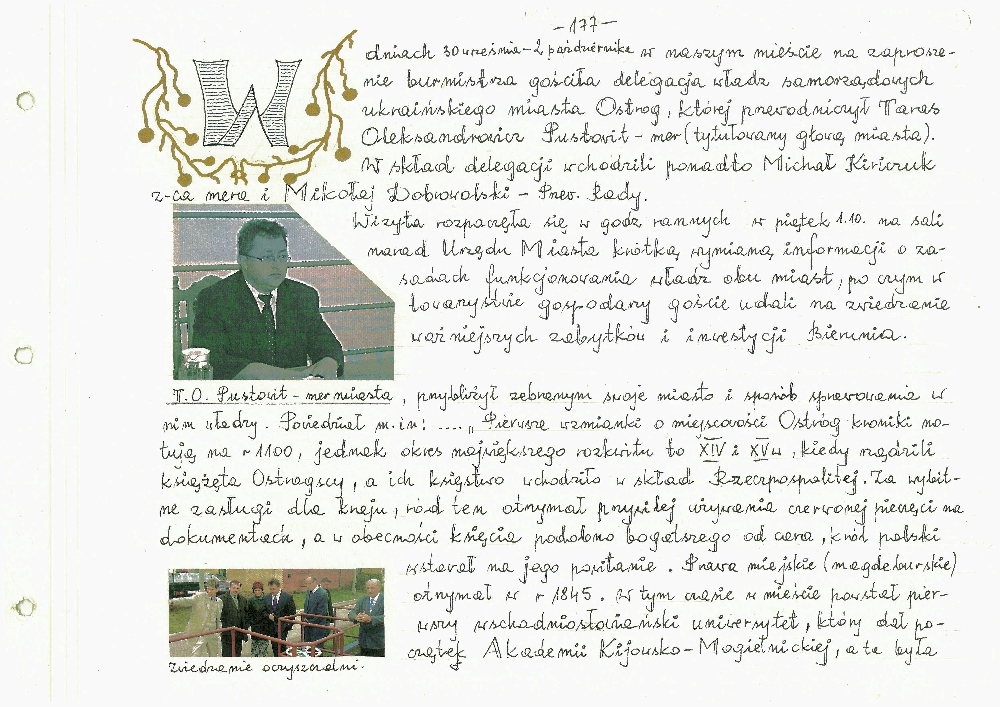 -177-
W dniach 30 września-2 października w naszym mieście na zaprosze-
nie burmistrza gościła delegacja władz samorządowych
ukraińskiego miasta Ostrog, której przewodniczył Taras
Oleksandrowicz Pustowit - mer (tytułowany głową miasta).
W skład delegacji wchodzili ponadto Michał Kiriczuk
z-ca mera i Mikołaj Dobrowolski - Przew. Rady.
Wizyta rozpaczęła się w godz rannych w piątek 1.10. na sali
narad Urzędu Miasta krótką wymianą informacji o za-
sadach funkcjonowania władz obu miast, po czym w
towarzystwie gospodarzy goście udali na zwiedzanie
ważniejszych zabytków i inwestycji Bierunia.
T.O. Pustowit - mer miasta, przybliżył zebranym swoje miasto i sposób sprawowania w
nim władzy. Powiedział m.in: .... „Pierwsze wzmianki o miejscowości Ostróg kroniki no-
tują na r 1100, jednak okres największego rozkwitu to XIV i XV w, kiedy rządzili
książęta Ostrogscy, a ich księstwo wchodziło w skład Rzeczpospolitej. Za wybit-
ne zasługi dla kraju, ród ten otrzymał przywilej używania czerwonej pieczęci na
dokumentach, a w obecności księcia podobno bogatszego od cara, król polski
wstawał na jego powitanie. Prawa miejskie (magdeburskie)
otrzymał w r 1845. W tym czasie w mieście powstał pier-
wszy wschodniosłowiański uniwersytet, który dał po-
czątek Akademii Kijowsko-Mogielnickiej, a te była
Zwiedzanie oczyszczalni.